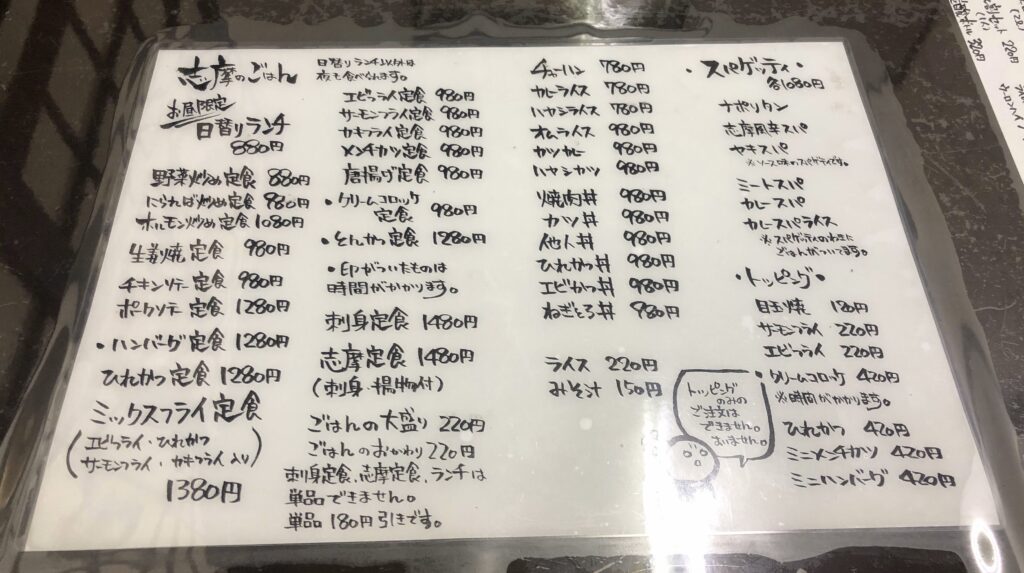 志摩のごはん
お昼限定
日替りランチ
880円
野菜炒め定食 880円
にられば炒め定食 980円
ホルモン炒め定食 1080円
生姜焼定食 980円
チキンソテー定食 980円
ポークソテー定食 1280円
・ハンバーグ定食 1280円
ひれかつ定食 1280円
ミックスフライ定食
(エビフライ・ひれかつ
サーモンフライ・カキフライ入り)
1380円
日替りランチ以外は
夜も食べられます。
エビフライ定食 980円
サーモンフライ定食 980円
カキフライ定食 980円
メンチカツ定食 980円
唐揚げ定食 980円
・クリームコロッケ
定食 980円
・とんかつ定食 1280円
・印がついたものは
時間がかかります。
刺身定食 1480円
志摩定食 1480円
(刺身・揚物付)
ごはんの大盛り 220円
ごはんのおかわり 220円
刺身定食、志摩定食、ランチは
単品できません。
単品 180円引きです。
チャーハン 780円
カレーライス 780円
ハヤシライス 780円
オムライス 980円
カツカレー 980円
ハヤシカツ 980円
焼肉丼 980円
カツ丼 980円
他人丼 980円
ひれかつ丼 980円
エビかつ丼 980円
ねぎとろ丼 980円
ライス 220円
みそ汁 150円
・スパゲッティ・
各1080円
ナポリタン
志摩風辛スパ
ヤキスパ
※ソース味のスパゲティです。
ミートスパ
カレースパ
カレースパライス
※スパゲッティのわきに
ごはんがついてます。
・トッピング・
目玉焼 180円
サーモンフライ 220円
エビフライ 220円
・クリームコロッケ 420円
※時間がかかります。
ひれかつ 420円
ミニメンチカツ 420円
ミニハンバーグ 420円
トッピング
のみの
ご注文は
できません。
すいません。